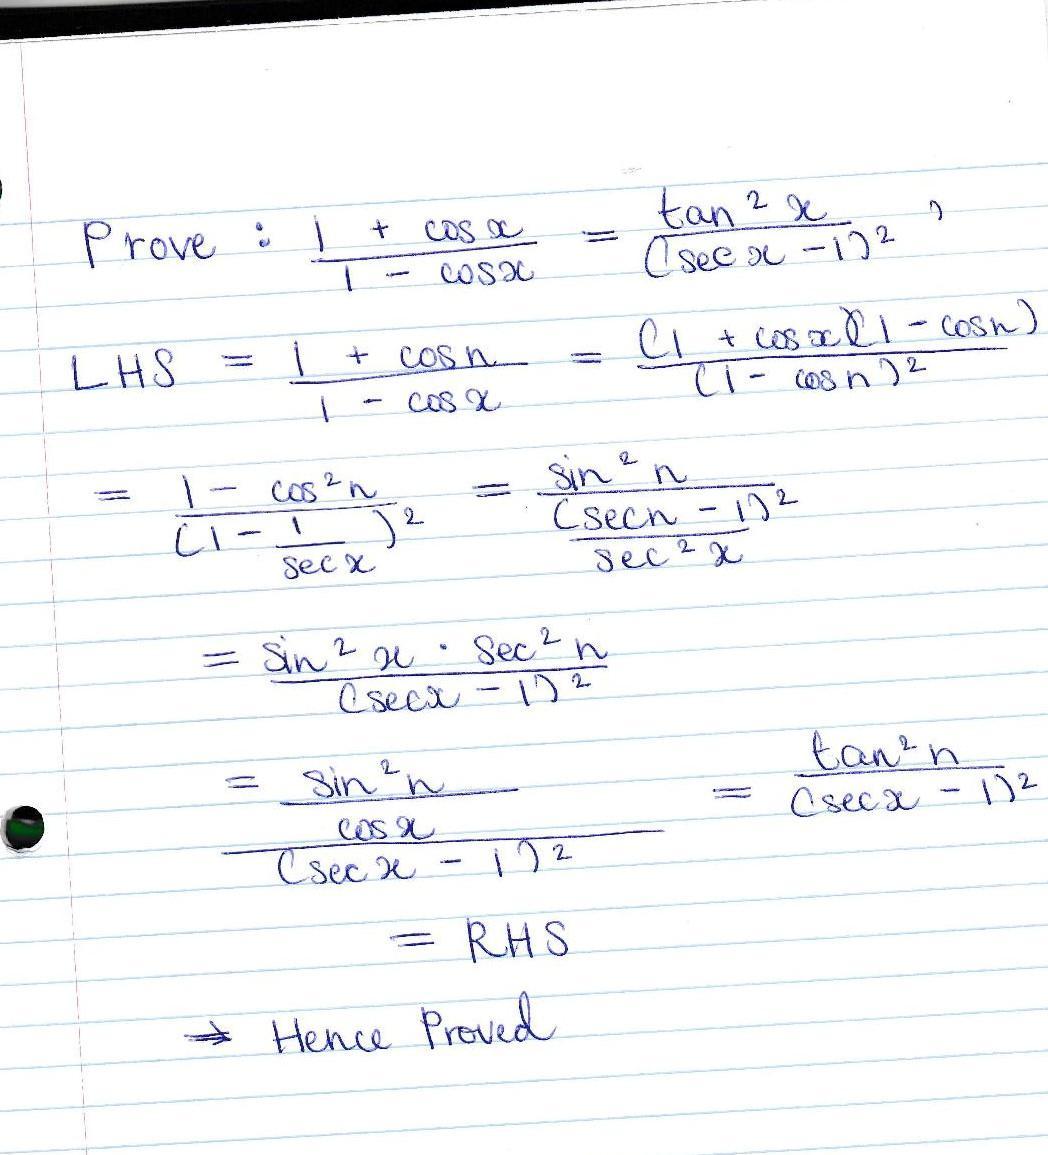 Prove : (1 + cos x)/(1 - cosx) = (tan² x)/(sec x - 1)² ,
LHS = (1 + cos n)/(1 - cos x) = ((1 + cos x)(1 - cosn))/(1 - cos n)²
= (1 - cos²n)/(1 - 1/sec x)² = (sin² n)/((secn - 1)²/sec² x)
= (sin² x · Sec² n)/(secx - 1)²
= (sin²n/cos x)/(sec x - 1)² = (tan² n)/(sec x - 1)²
= RHS
⇒ Hence Proved